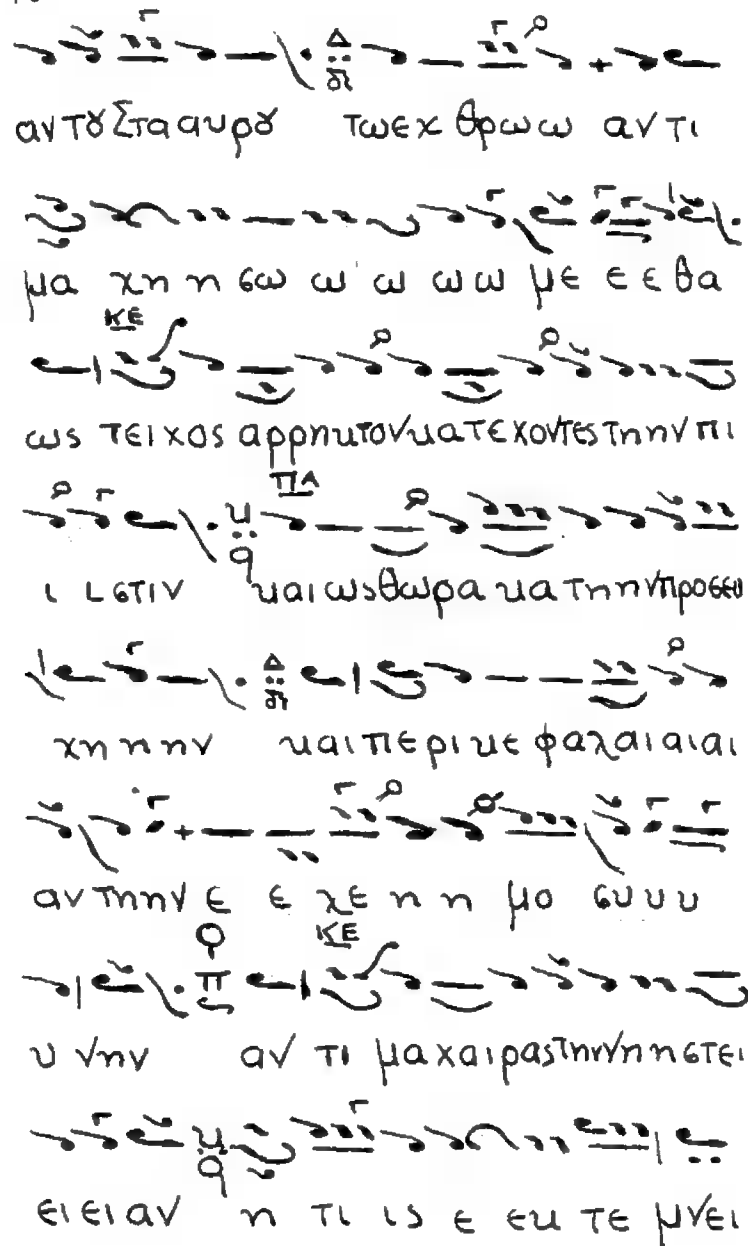 αν τȣ Σταα υρȣ τω εχ θρω ω αν τι
μα χη η σω ω ω ω ω με ε ε θα
ΚΕ
ως τει χος αρρηκτον κατεχοντες τη ην πι
ΠΑ
ι ι στιν και ως θωρα κα τη ην προσευ
χη η ην και περι κε φα λαι αι αι
αν τη ην ε ε λε η η μο συ υ υ
ΚΕ
υ νην αν τι μα χαι ρας τη ην νη η στει
ει ει αν η τι ις ε εκ τε μνει